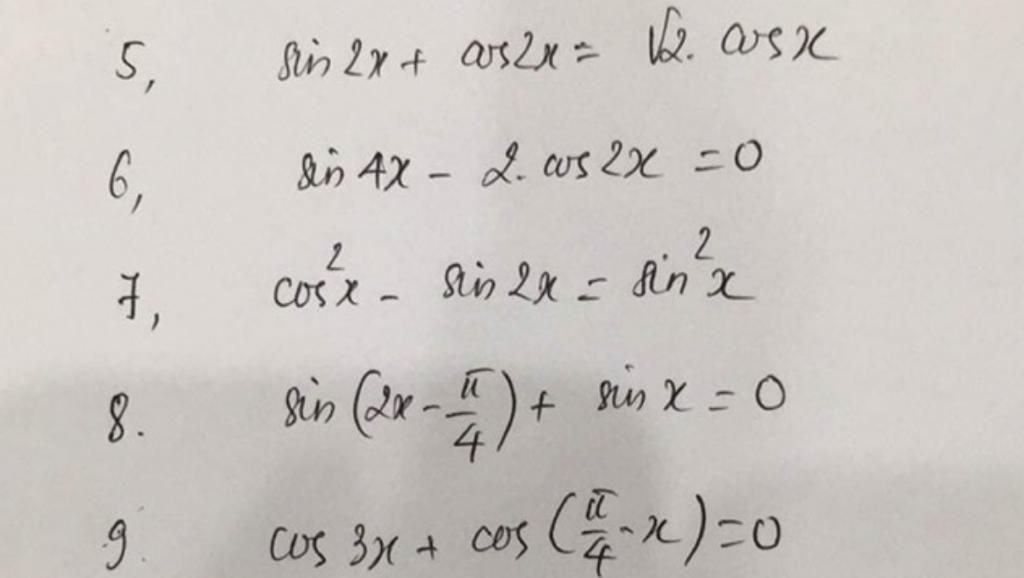 5, sin 2x + cos 2x = √2. cos x
6, sin 4x - 2. cos 2x = 0
7, cos²x - sin 2x = sin²x
8. sin (2x - π/4) + sin x = 0
9. cos 3x + cos (π/4 - x) = 0